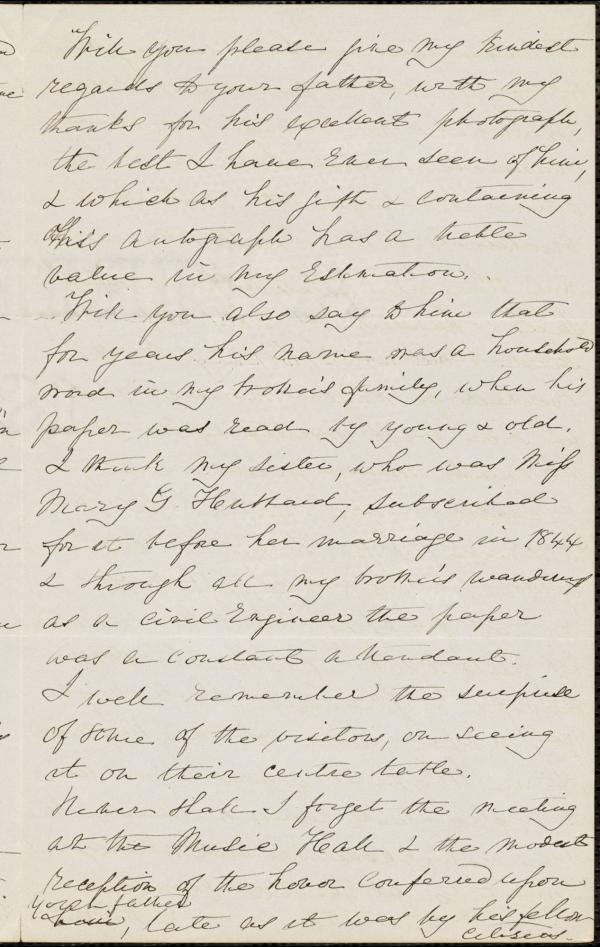 Will you please give my kindest
regards to your father, with my
thanks for his excellent photograph,
the best I have ever seen of him,
& which as his gift & containing
his autograph has a treble
value in my estimation.
Will you also say to him that
for years his name was a household
word in my brother's family, when his
paper was read by young & old.
I think my sister, who was Miss
Mary G Hubbard, subscribed
for it before her marriage in 1844
& through all my brother's wanderings
as a Civil Engineer the paper
was a constant attendant.
I well remember the surprise
of some of the visitors, on seeing
it on their centre table.
Never shall I forget the meeting
at the Music Hall & the modest
reception of the honor conferred upon
your father
him, late as it was by his fellow
citizens.